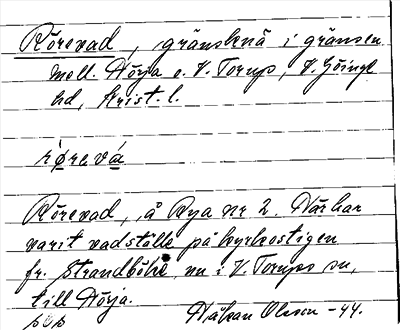 Rörevad, gränsknä i gränsen
mell. Nörja o. V. Torup, V. Göinge
hd, Krist. l.
rø̀revá
Rörevad, å Rya nr 2. Här har
varit vadställe på kyrkostigen
fr. Strandböke, nu i V. Torups sn,
till Nörja.
Håkan Olsson -44.